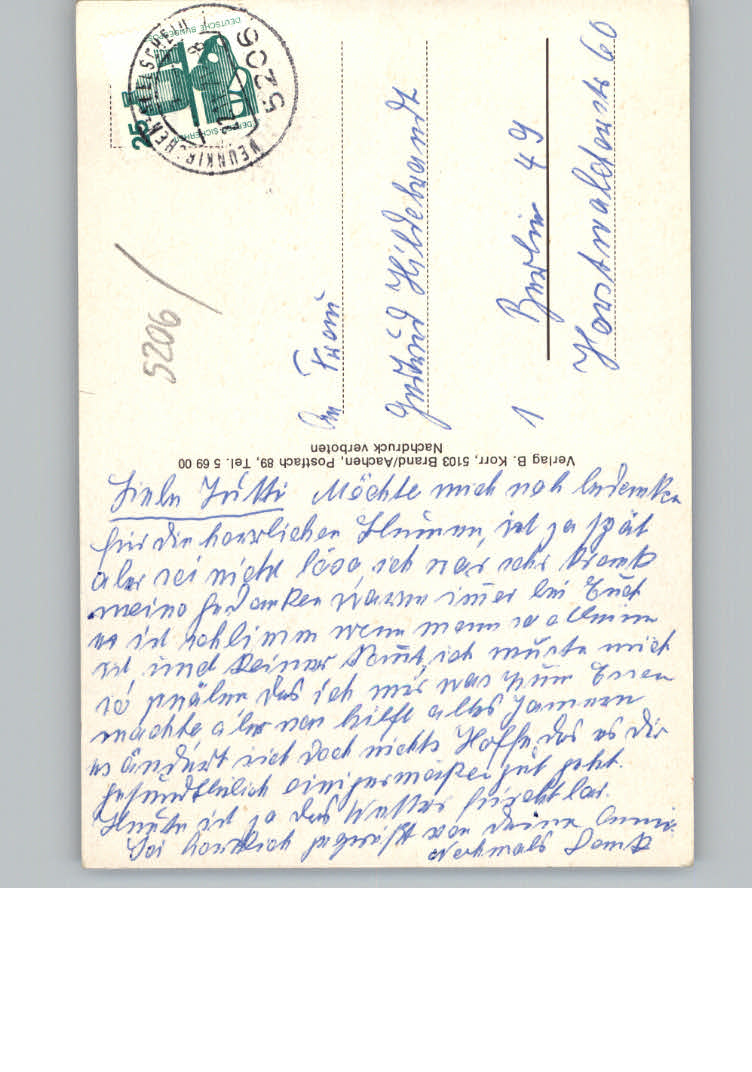 Liebe Jutti Möchte mich noh bedenken
für die herrlichen Blumen, ist ja spät
aber sei nicht böse ich war sehr krank
meine Gedanken waren imer bei Euch
es ist schlimm wenn mann so alleine
ist und keiner komt, ich muste mich
so quälen das ich mir was zum Essen
machte aber was hilft alles Jamern
es ändert sich doch nichts Hoffe das es dir
gesundheitlich einigermaßen gut geht.
Heute ist ja das Wetter furchtbar.
Sei herzlich gegrüßt von deine Anni
Nochmals Dank
Verlag B. Korr, 5103 Brand/Aachen, Postfach 89, Tel. 5 69 00
Nachdruck verboten
5206
25
DEUTSCHE BUNDESPOST
5206
NEUNKIRCHEN-SEELSCHEID
An Frau
Gertrud Hildebrandt
1 Berlin 49
Horstwalderstr 60